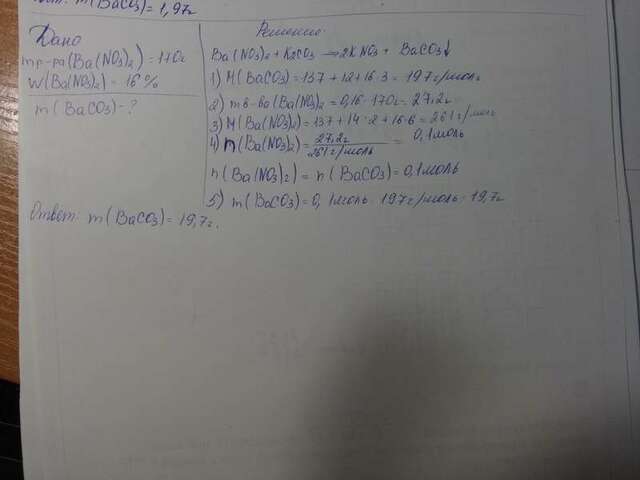 m(BaCO3) = 1,97г
Дано
mр-ра(Ba(NO3)2) = 170г
W(Ba(NO3)2) = 16%
m(BaCO3) - ?
Решение:
Ba(NO3)2 + K2CO3 → 2KNO3 + BaCO3↓
1) M(BaCO3) = 137 + 12 + 16·3 = 197г/моль
2) mв-ва(Ba(NO3)2 = 0,16·170г = 27,2г
3) M(Ba(NO3)2) = 137 + 14·2 + 16·6 = 261г/моль
4) n(Ba(NO3)2) = 27,2г / 261г/моль = 0,1моль
n(Ba(NO3)2) = n(BaCO3) = 0,1моль
5) m(BaCO3) = 0,1моль · 197г/моль = 19,7г
Ответ: m(BaCO3) = 19,7г.